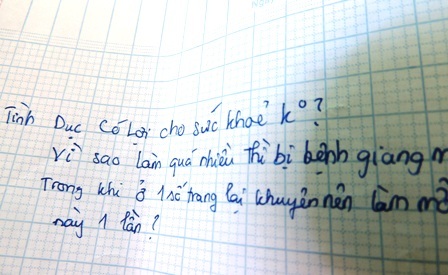 Tình Dục Có Lợi cho sức khoẻ k⁰?
Vì sao làm quá nhiều thì bị bệnh giang
Trong khi ở 1 số trang lại khuyên nên làm
này 1 lần?